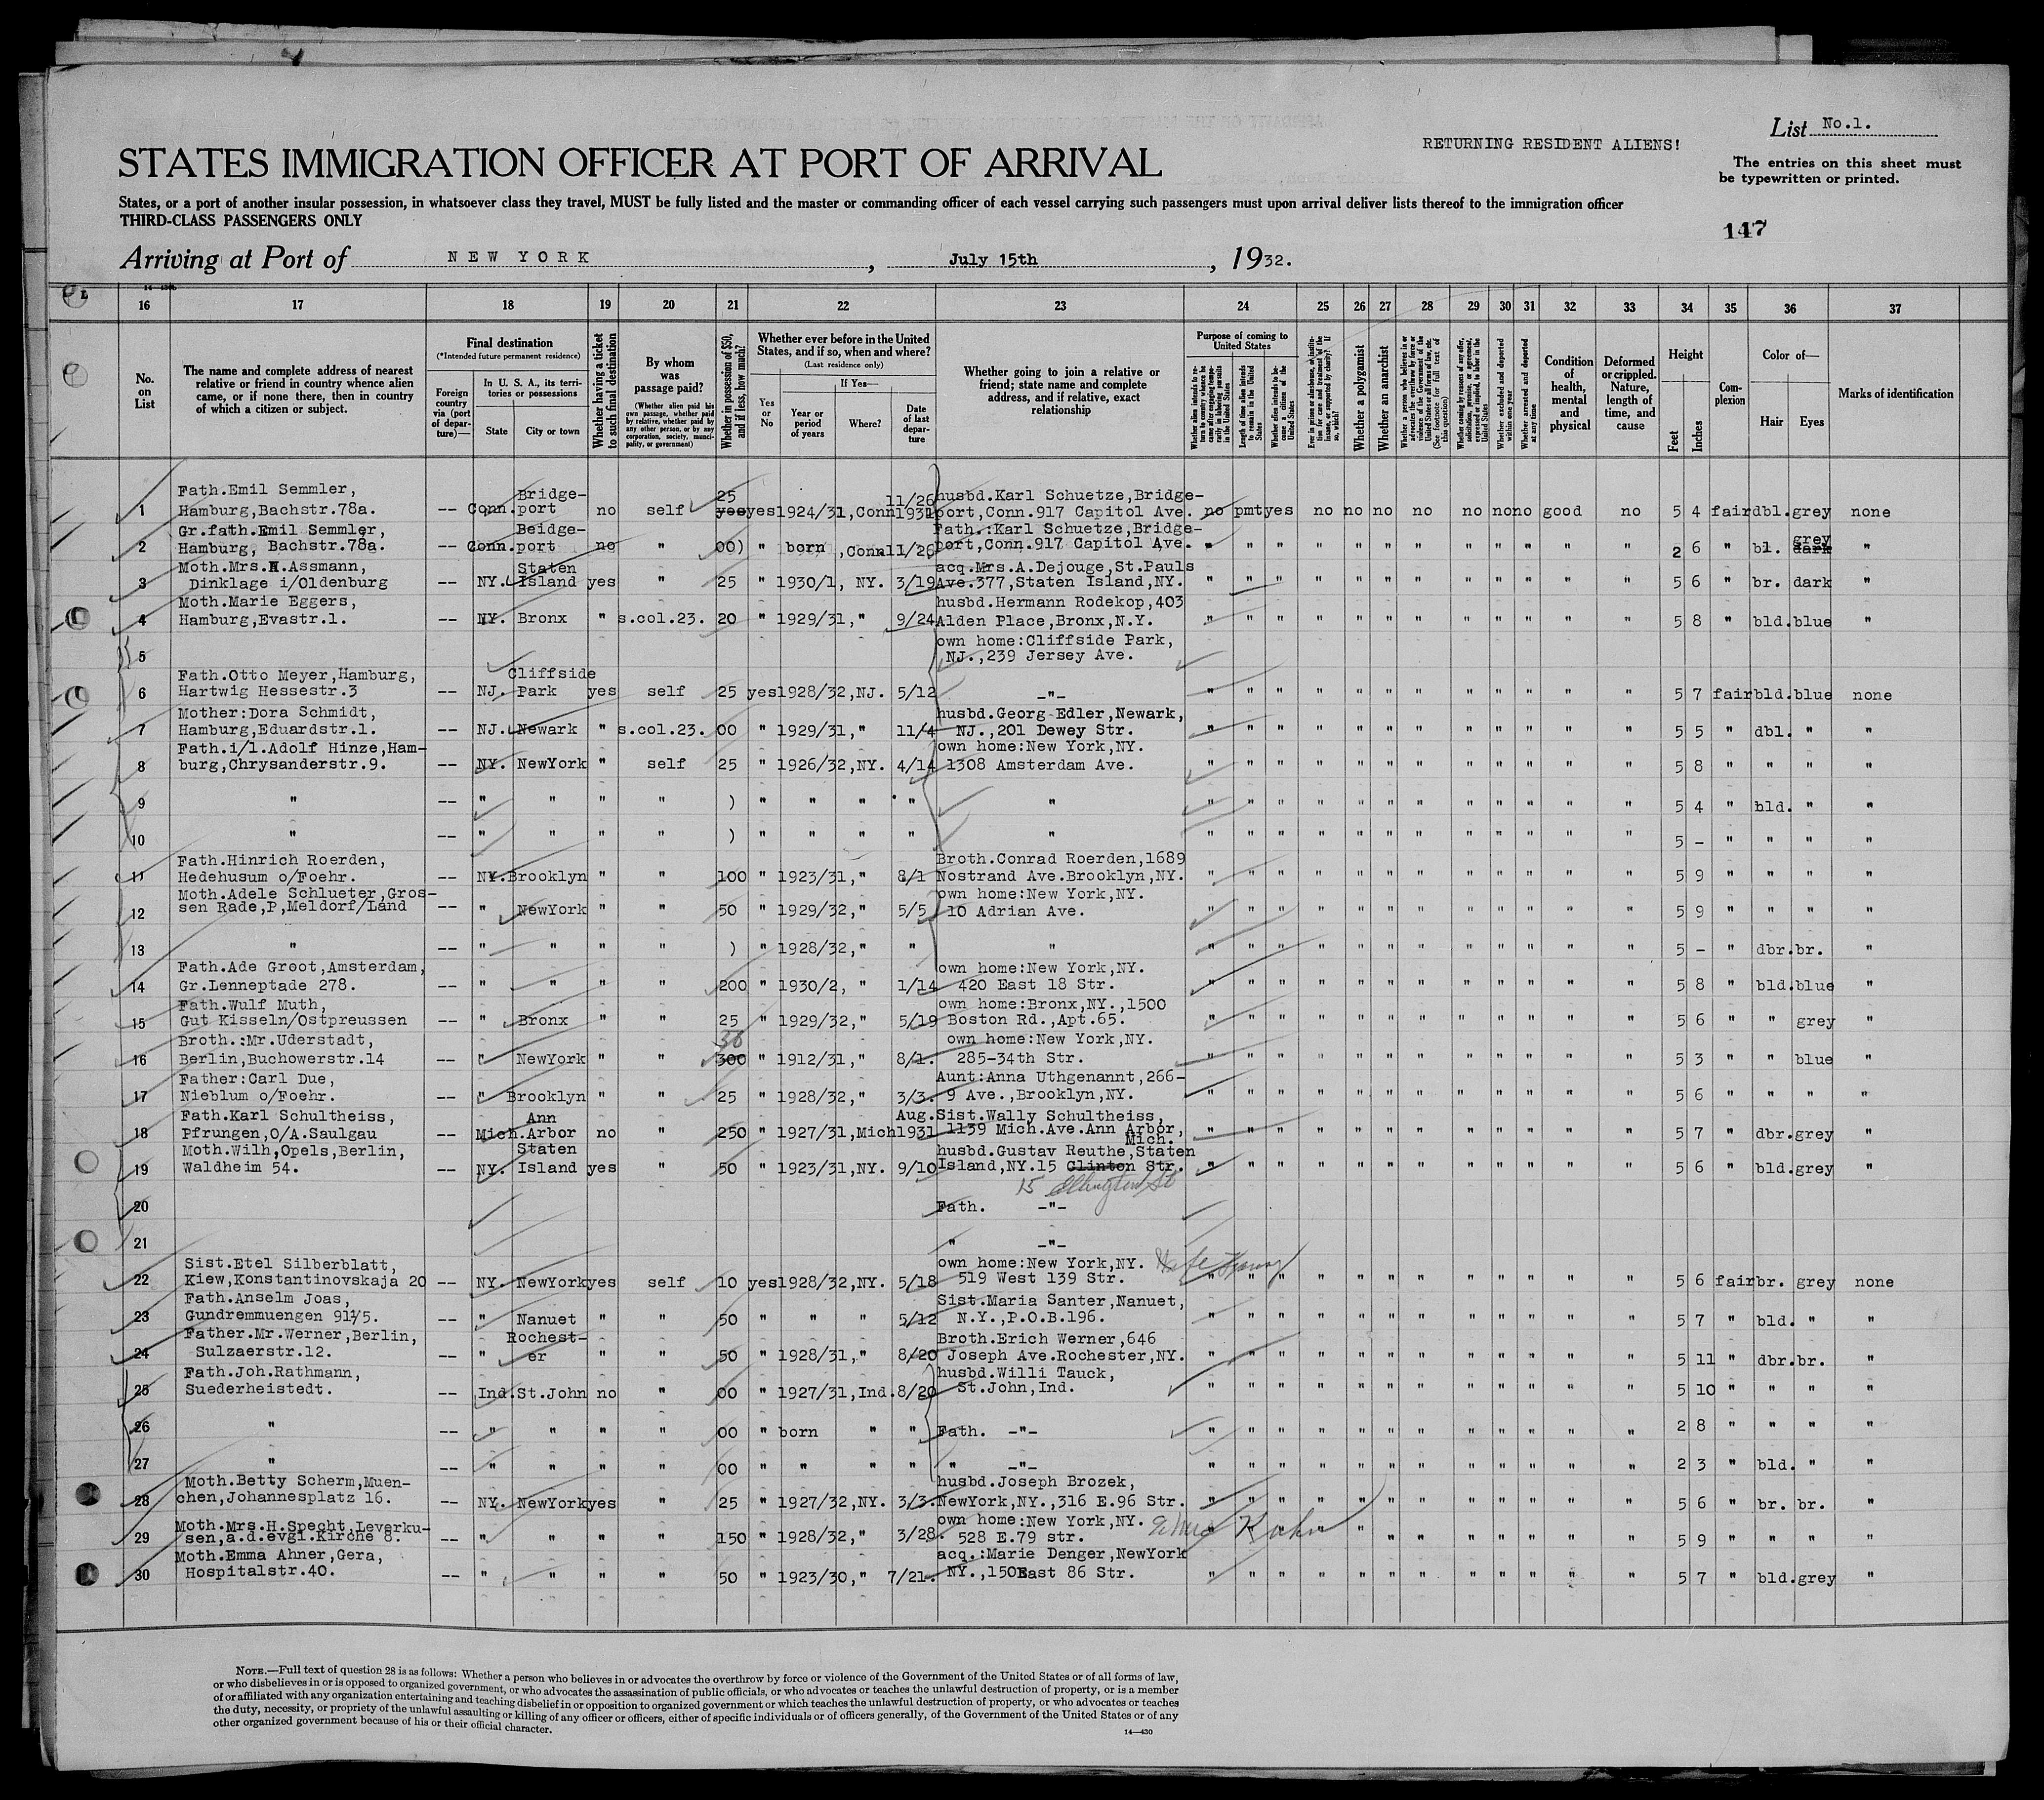 List No.1.
RETURNING RESIDENT ALIENS!
STATES IMMIGRATION OFFICER AT PORT OF ARRIVAL
The entries on this sheet must
be typewritten or printed.
States, or a port of another insular possession, in whatsoever class they travel, MUST be fully listed and the master or commanding officer of each vessel carrying such passengers must upon arrival deliver lists thereof to the immigration officer
THIRD-CLASS PASSENGERS ONLY
147
Arriving at Port of NEW YORK, July 15th, 1932.
16 17 18 19 20 21 22 23 24 25 26 27 28 29 30 31 32 33 34 35 36 37
No. on List
The name and complete address of nearest relative or friend in country whence alien came, or if none there, then in country of which a citizen or subject.
Final destination
(*Intended future permanent residence)
Foreign country via (port of departure)—
In U. S. A., its territories or possessions
State
City or town
Whether having a ticket to such final destination
By whom was passage paid?
(Whether alien paid his own passage, whether paid by relative, whether paid by any other person, or by any corporation, society, municipality, or government)
Whether in possession of $50, and if less, how much?
Whether ever before in the United States, and if so, when and where?
(Last residence only)
Yes or No
If Yes—
Year or period of years
Where?
Date of last departure
Whether going to join a relative or friend; state name and complete address, and if relative, exact relationship
Purpose of coming to United States
Whether alien intends to return to country whence he came after engaging temporarily in laboring pursuits in the United States
Length of time alien intends to remain in the United States
Whether alien intends to become a citizen of the United States
Ever in prison or almshouse, or institution for care and treatment of the insane, or supported by charity? If so, which?
Whether a polygamist
Whether an anarchist
Whether a person who believes in or advocates the overthrow by force or violence of the Government of the United States or all forms of law, etc. (See footnote for full text of this question)
Whether coming by reasons of any offer, solicitation, promise, or agreement, expressed or implied, to labor in the United States
Whether excluded and deported within one year
Whether arrested and deported at any time
Condition of health, mental and physical
Deformed or crippled. Nature, length of time, and cause
Height
Feet
Inches
Complexion
Color of—
Hair
Eyes
Marks of identification
1 Fath.Emil Semmler, Hamburg,Bachstr.78a. -- Conn. Bridge-port no self 25 yes yes 1924/31,Conn 11/26 1931 husbd.Karl Schuetze,Bridge-port,Conn.917 Capitol Ave. no pmt yes no no no no no no no good no 5 4 fair dbl. grey none
2 Gr.fath.Emil Semmler, Hamburg, Bachstr.78a. -- Conn. Beidge-port no " 00) " born ,Conn 11/26 Fath.:Karl Schuetze,Bridge-port,Conn.917 Capitol Ave. " " " " " " " " " " " " 2 6 " bl. grey dark "
3 Moth.Mrs.H.Assmann, Dinklage i/Oldenburg -- NY. Staten Island yes " 25 " 1930/1, NY. 3/19 acq.Mrs.A.Dejouge,St.Pauls Ave.377,Staten Island,NY. " " " " " " " " " " " " 5 6 " br. dark "
4 Moth.Marie Eggers, Hamburg,Evastr.1. -- NY. Bronx " s.col.23. 20 " 1929/31," 9/24 husbd.Hermann Rodekop,403 Alden Place,Bronx,N.Y. " " " " " " " " " " " " 5 8 " bld. blue "
5 own home:Cliffside Park, NJ.,239 Jersey Ave.
6 Fath.Otto Meyer,Hamburg, Hartwig Hessestr.3 -- NJ. Cliffside Park yes self 25 yes 1928/32,NJ. 5/12 -"- " " " " " " " " " " " " 5 7 fair bld. blue none
7 Mother:Dora Schmidt, Hamburg,Eduardstr.1. -- NJ. Newark " s.col.23. 00 " 1929/31," 11/4 husbd.Georg Edler,Newark, NJ.,201 Dewey Str. " " " " " " " " " " " " 5 5 " dbl. " "
8 Fath.i/l.Adolf Hinze,Ham-burg,Chrysanderstr.9. -- NY. NewYork " self 25 " 1926/32,NY. 4/14 own home:New York,NY. 1308 Amsterdam Ave. " " " " " " " " " " " " 5 8 " " " "
9 " -- " " " " ) " " " " " " " " " " " " " " " " " " 5 4 " bld. " "
10 " -- " " " " ) " " " " " " " " " " " " " " " " " " 5 - " " " "
11 Fath.Hinrich Roerden, Hedehusum o/Foehr. -- NY. Brooklyn " " 100 " 1923/31," 8/1 Broth.Conrad Roerden,1689 Nostrand Ave.Brooklyn,NY. " " " " " " " " " " " " 5 9 " " " "
12 Moth.Adele Schlueter,Gros-sen Rade,P,Meldorf/Land -- " NewYork " " 50 " 1929/32," 5/5 own home:New York,NY. 10 Adrian Ave. " " " " " " " " " " " " 5 9 " " " "
13 " -- " " " " ) " 1928/32," " " " " " " " " " " " " " " 5 - " dbr. br. "
14 Fath.Ade Groot,Amsterdam, Gr.Lenneptade 278. -- " " " " 200 " 1930/2, " 1/14 own home:New York,NY. 420 East 18 Str. " " " " " " " " " " " " 5 8 " bld. blue "
15 Fath.Wulf Muth, Gut Kisseln/Ostpreussen -- " Bronx " " 25 " 1929/32," 5/19 own home:Bronx,NY.,1500 Boston Rd.,Apt.65. " " " " " " " " " " " " 5 6 " " grey "
16 Broth.:Mr.Uderstadt, Berlin,Buchowerstr.14 -- " NewYork " " 300 " 1912/31," 8/1. own home:New York,NY. 285-34th Str. " " " " " " " " " " " " 5 3 " " blue "
17 Father:Carl Due, Nieblum o/Foehr. -- " Brooklyn " " 25 " 1928/32," 3/3. Aunt:Anna Uthgenannt,266-9 Ave.,Brooklyn,NY. " " " " " " " " " " " " 5 6 " " " "
18 Fath.Karl Schultheiss, Pfrungen,O/A.Saulgau -- Mich. Ann Arbor no " 250 " 1927/31,Mich Aug. 1931 Sist.Wally Schultheiss, 1139 Mich.Ave.Ann Arbor, Mich. " " " " " " " " " " " " 5 7 " dbr. grey "
19 Moth.Wilh,Opels,Berlin, Waldheim 54. -- NY. Staten Island yes " 50 " 1923/31,NY. 9/10 husbd.Gustav Reuthe,Staten Island,NY.15 Clinton Str. " " " " " " " " " " " " 5 6 " bld. grey "
15 Ellington St
20 Fath. -"-
21 " -"-
22 Sist.Etel Silberblatt, Kiew,Konstantinovskaja 20 -- NY. NewYork yes self 10 yes 1928/32,NY. 5/18 own home:New York,NY. 519 West 139 Str. " " " " " " " " " " " " 5 6 fair br. grey none
23 Fath.Anselm Joas, Gundremmuengen 91½5. -- " Nanuet " " 50 " " " 5/12 Sist.Maria Santer,Nanuet, N.Y.,P.O.B.196. " " " " " " " " " " " " 5 7 " bld. " "
24 Father.Mr.Werner,Berlin, Sulzaerstr.12. -- " Rochest-er " " 50 " 1928/31," 8/20 Broth.Erich Werner,646 Joseph Ave.Rochester,NY. " " " " " " " " " " " " 5 11 " dbr. br. "
25 Fath.Joh.Rathmann, Suederheistedt. -- Ind. St.John no " 00 " 1927/31,Ind. 8/20 husbd.Willi Tauck, St.John,Ind. " " " " " " " " " " " " 5 10 " " " "
26 " -- " " " " 00 " born " " Fath. -"- " " " " " " " " " " " " 2 8 " " " "
27 " -- " " " " 00 " " " " " -"- " " " " " " " " " " " " 2 3 " bld. " "
28 Moth.Betty Scherm,Muen-chen,Johannesplatz 16. -- NY. NewYork yes " 25 " 1927/32,NY. 3/3. husbd.Joseph Brozek, NewYork,NY.,316 E.96 Str. " " " " " " " " " " " " 5 6 " br. br. "
29 Moth.Mrs.H.Specht,Leverku-sen,a.d.evgl.Kirche 8. -- " " " " 150 " 1928/32," 3/28. own home:New York,NY. 528 E.79 str. Kahn " " " " " " " " " 5 9 " " " "
30 Moth.Emma Ahner,Gera, Hospitalstr.40. -- " " " " 50 " 1923/30," 7/21. acq.:Marie Denger,NewYork NY.,150East 86 Str. " " " " " " " " " " " " 5 7 " bld. grey "
NOTE.—Full text of question 28 is as follows: Whether a person who believes in or advocates the overthrow by force or violence of the Government of the United States or of all forms of law,
or who disbelieves in or is opposed to organized government, or who advocates the assassination of public officials, or who advocates or teaches the unlawful destruction of property, or is a member
of or affiliated with any organization entertaining and teaching disbelief in or opposition to organized government or which teaches the unlawful destruction of property, or who advocates or teaches
the duty, necessity, or propriety of the unlawful assaulting or killing of any officer or officers, either of specific individuals or of officers generally, of the Government of the United States or of any
other organized government because of his or their official character.
14—430